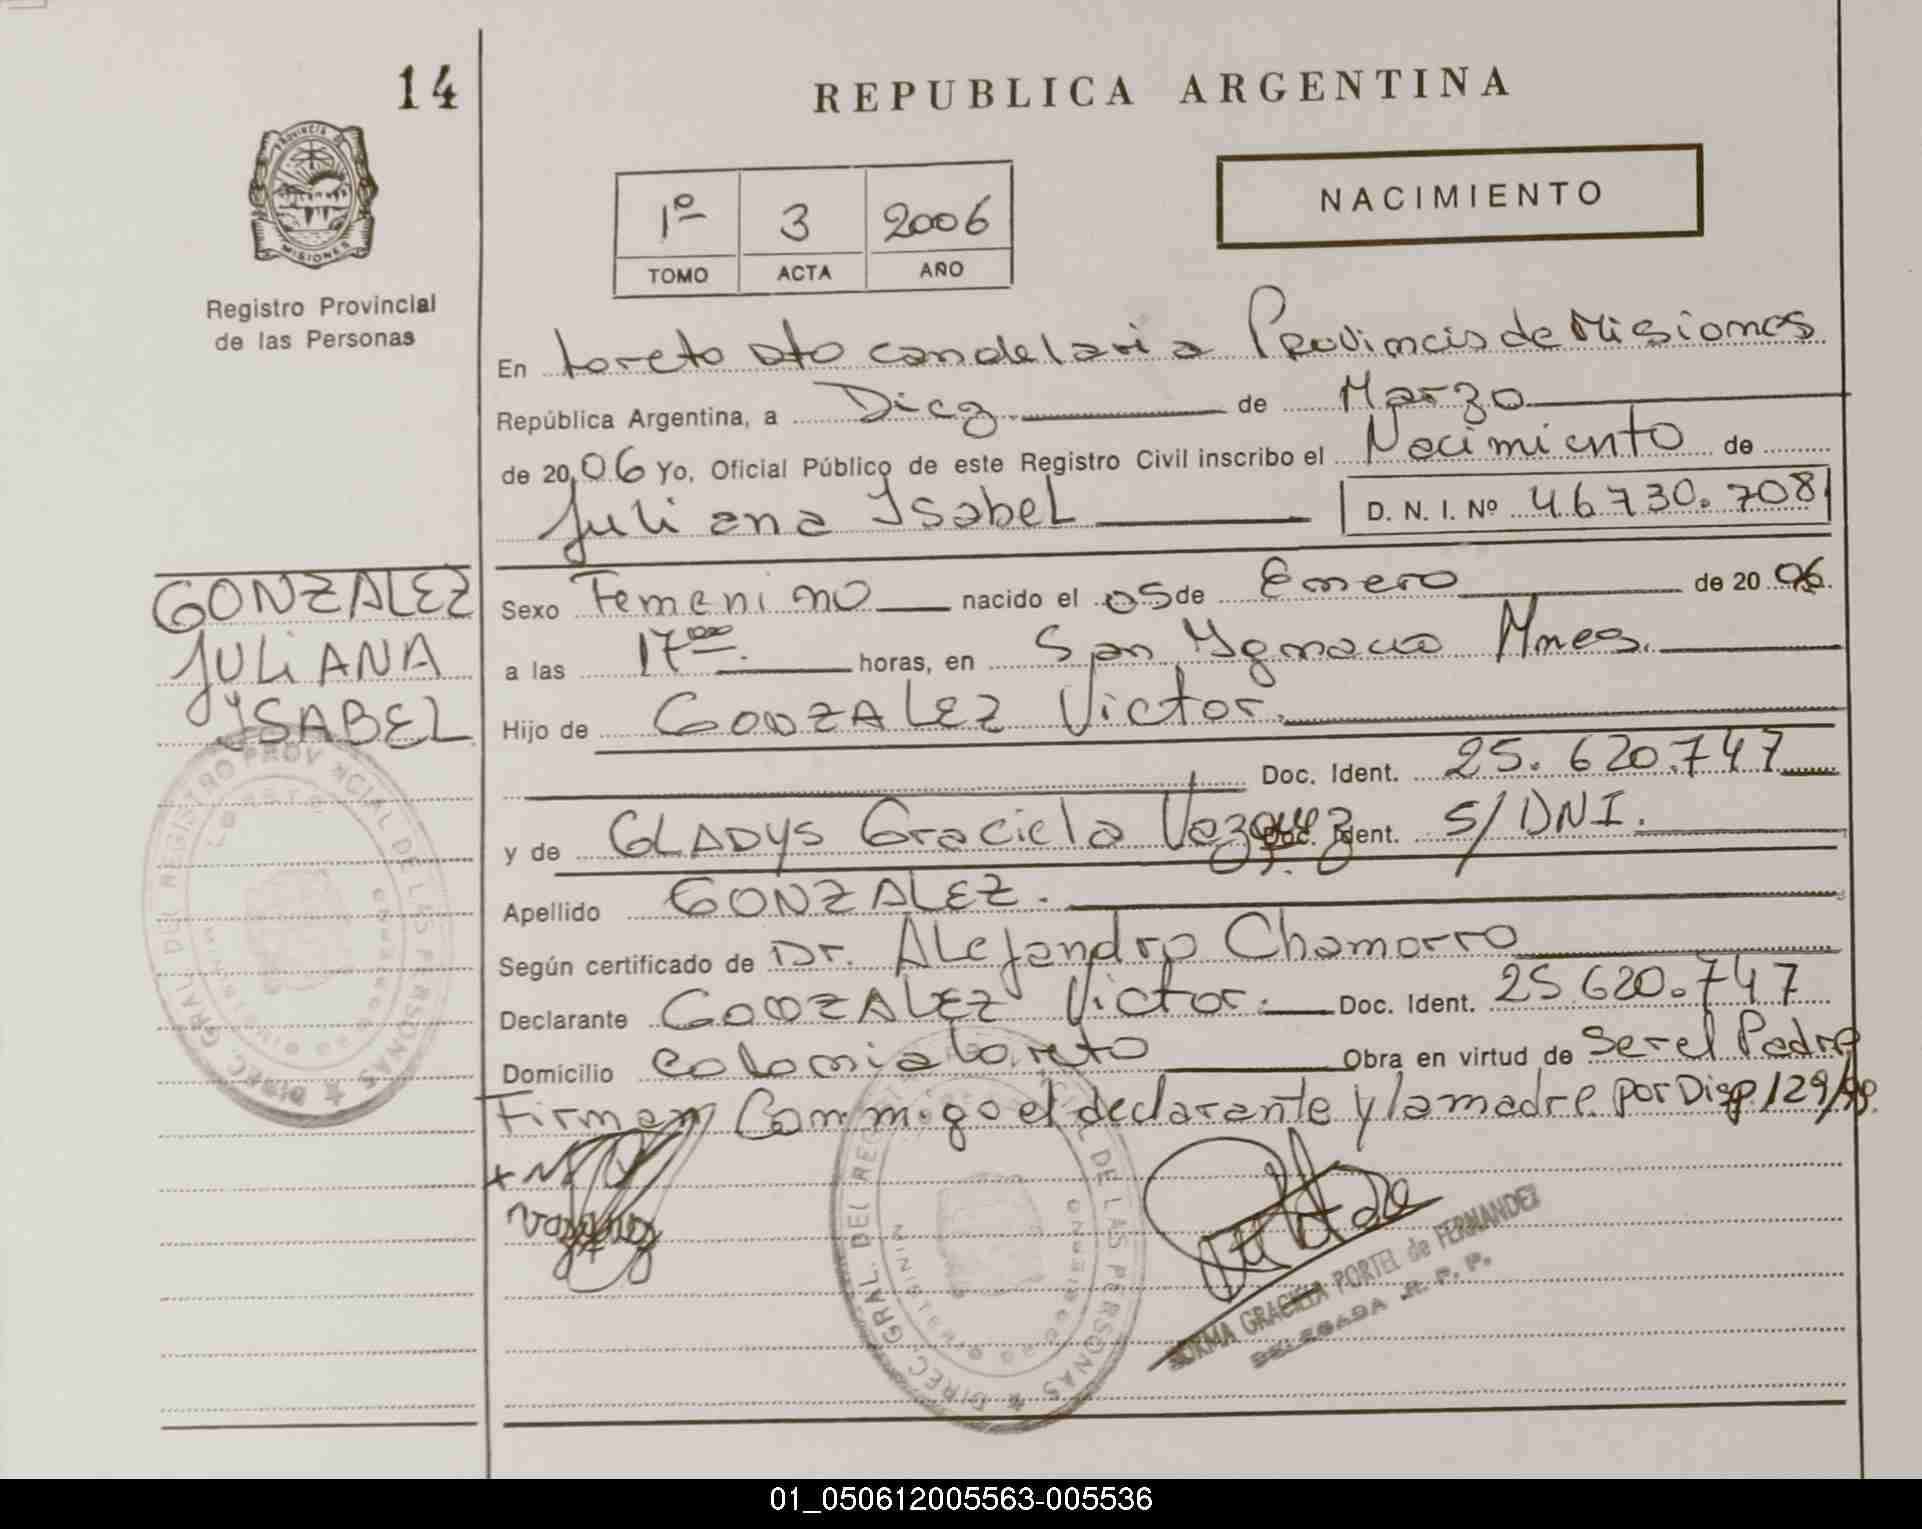 14
REPUBLICA ARGENTINA
PROVINCIA DE MISIONES
Registro Provincial
de las Personas
1º 3 2006
TOMO ACTA AÑO
NACIMIENTO
En Loreto Dto Candelaria Provincia de Misiones
República Argentina, a Diez de Marzo
de 2006 Yo, Oficial Público de este Registro Civil inscribo el Nacimiento de
Juliana Ysabel D. N. I. Nº 46730.708
GONZALEZ
JULIANA
YSABEL
Sexo Femenino nacido el 05 de Enero de 2006.
a las 17 00 horas, en San Ygnacio Mnes.
Hijo de GONZALEZ Victor.
Doc. Ident. 25.620.747
y de GLADYS Graciela Vazquez Doc. Ident. S/DNI.
Apellido GONZALEZ.
Según certificado de Dr. Alejandro Chamorro
Declarante GONZALEZ Victor. Doc. Ident. 25620.747
Domicilio Colonia Loreto Obra en virtud de Ser el Padre
Firman Conmigo el declarante y la madre por Disp. 129/99.
DIREC. GRAL. DEL REGISTRO PROVINCIAL DE LAS PERSONAS
LORETO
DIREC. GRAL. DEL REGISTRO PROVINCIAL DE LAS PERSONAS
NORMA GRACIELA PORTEL de FERNANDEZ
DELEGADA R. P. P.
01_050612005563-005536